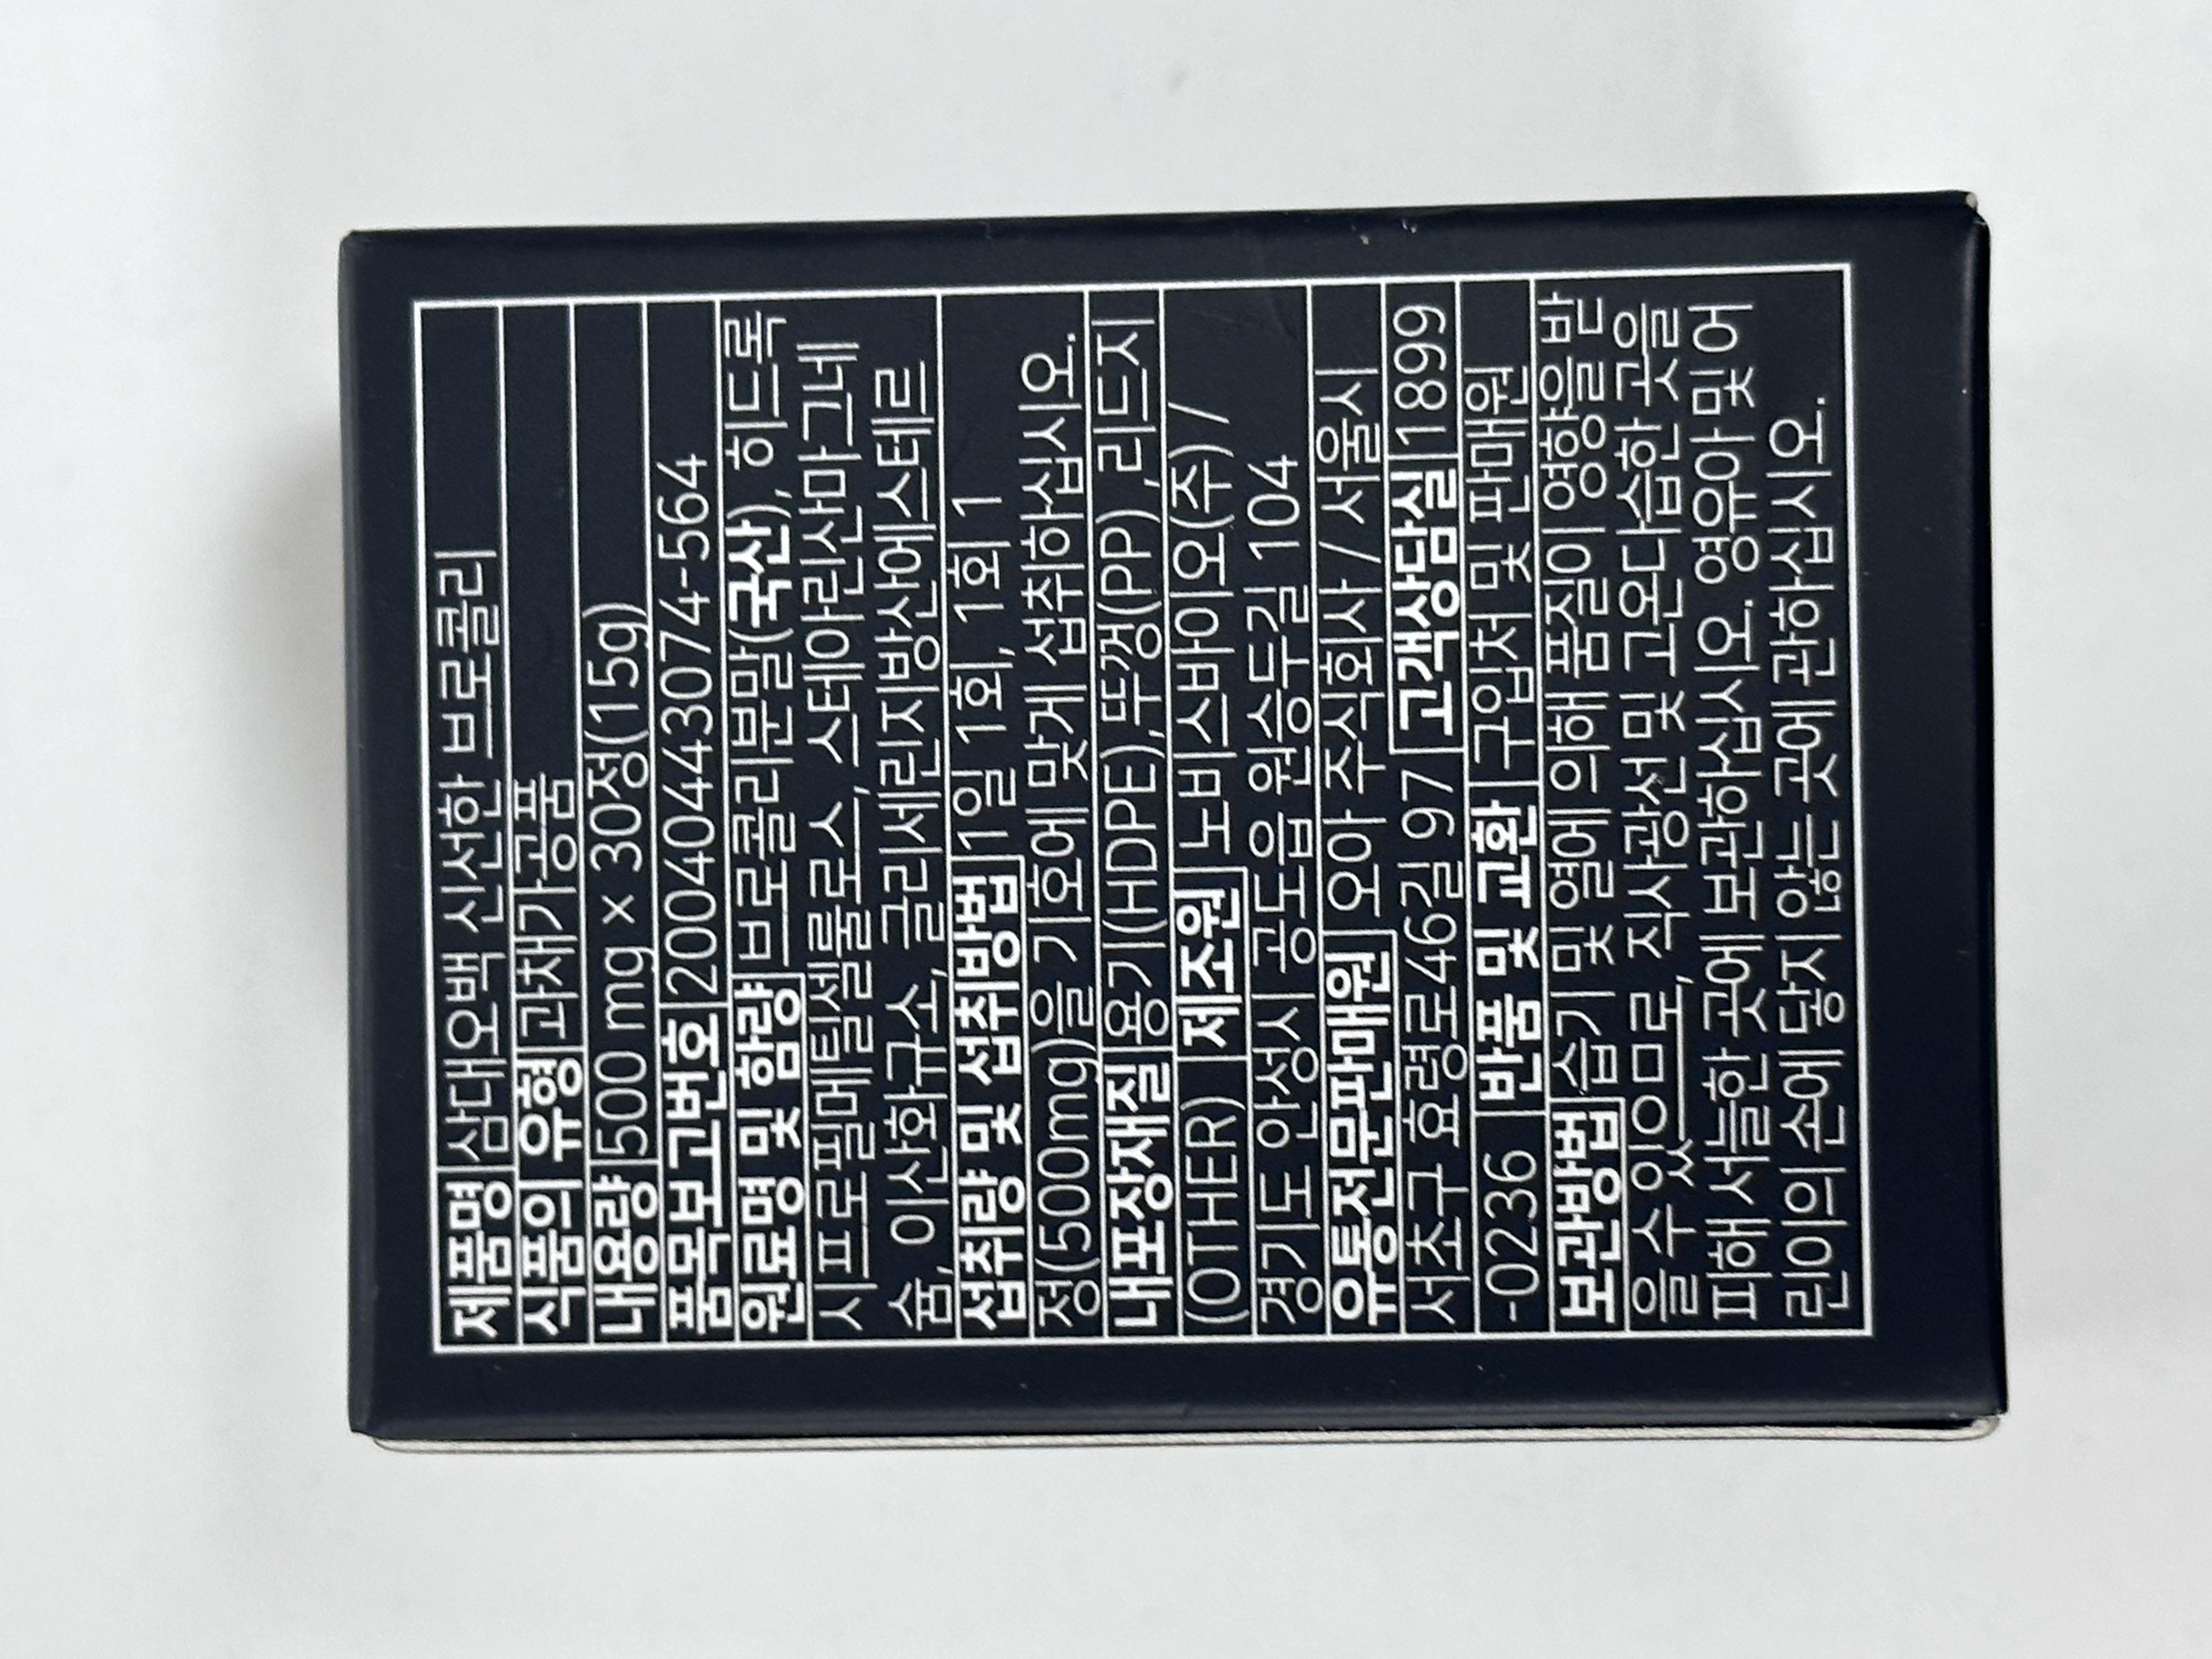 제품명 삼대오백 신선한 브로콜리
식품의 유형 과채가공품
내용량 500 mg x 30정(15g)
품목보고번호 20040443074-564
원료명 및 함량 브로콜리분말(국산), 히드록
시프로필메틸셀룰로스, 스테아린산마그네
슘, 이산화규소, 글리세린지방산에스테르
섭취량 및 섭취방법 1일 1회, 1회 1
정(500mg)을 기호에 맞게 섭취하십시오.
내포장재질 용기(HDPE),뚜껑(PP) ,리드지
(OTHER) 제조원 노비스바이오(주) /
경기도 안성시 공도읍 원승두길 104
유통전문판매원 오아 주식회사 / 서울시
서초구 효령로46길 97 고객상담실 1899
-0236 반품 및 교환 구입처 및 판매원
보관방법 습기 및 열에 의해 품질이 영향을 받
을 수 있으므로, 직사광선 및 고온다습한 곳을
피해 서늘한 곳에 보관하십시오. 영유아 및 어
린이의 손에 닿지 않는 곳에 관하십시오.